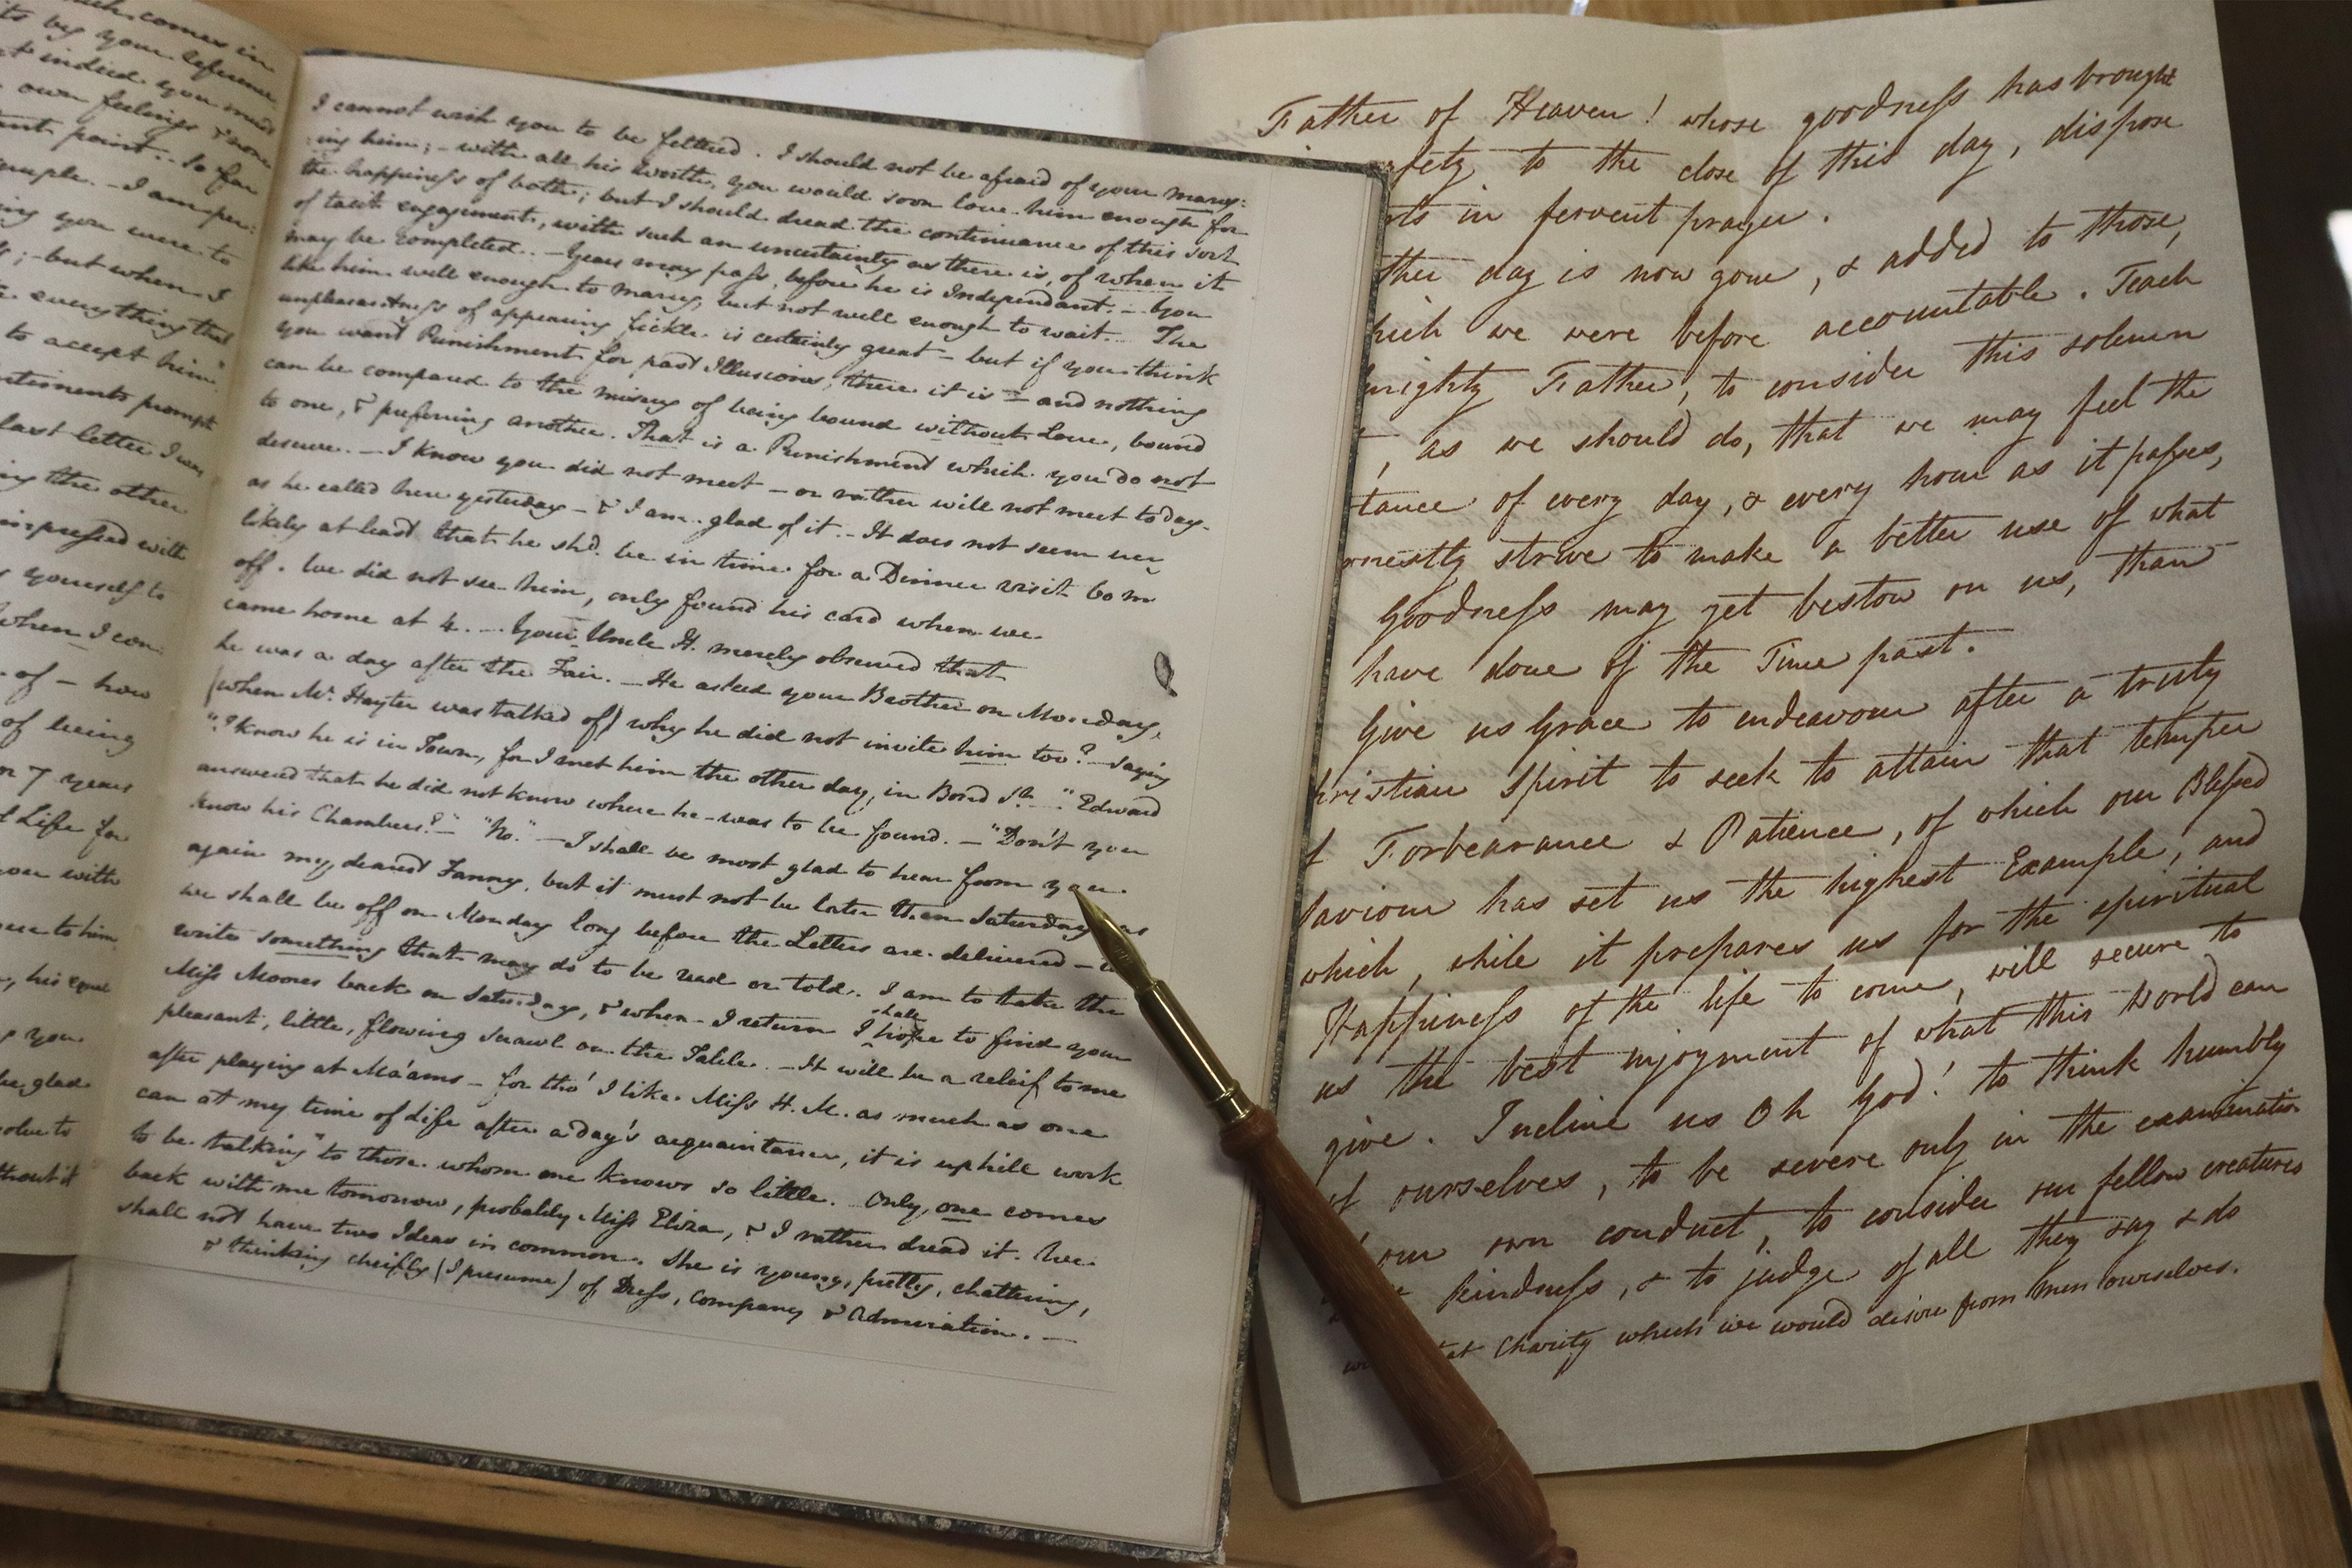 comes in
by your reference
indeed you
own feelings & none
point. - So far
- I am per:
you were to
; - but when I
everything that
to accept him.
prompt
last letter I was
the other
impressed with
yourself to
when I con
. of - how
of being
or 7 years
Life for
you with
to him
, his equal
you.
be glad
to
thout it
I cannot wish you to be fettered. I should not be afraid of your marry:
:ing him; - with all his worth, you would soon love him enough for
the happiness of both; but I should dread the continuance of this sort
of tacit engagement, with such an uncertainty as there is, of when it
may be completed. - Years may pass, before he is Independant. - You
like him well enough to marry, but not well enough to wait. - The
unpleasantness of appearing fickle is certainly great - but if you think
you want Punishment for past Illusions, there it is - and nothing
can be compared to the misery of being bound without Love, bound
to one, & preferring another. That is a Punishment which you do not
deserve. - I know you did not meet - or rather will not meet to day -
as he called here yesterday - & I am glad of it. - It does not seem very
likely at least that he shd. be in time for a Dinner visit 60 m
off. We did not see him, only found his card when we
came home at 4. - Your Uncle H. merely observed that
he was a day after the Fair. - He asked your Brother on Monday,
(when Mr. Hayter was talked of) why he did not invite him too? - saying
"I know he is in Town, for I met him the other day in Bond St. -" Edward
answered that he did not know where he was to be found. - "Don't you
know his Chambers?" - "No." - I shall be most glad to hear from you
again my dearest Fanny, but it must not be later than Saturday as
we shall be off on Monday long before the Letters are delivered -
write something that may do to be read or told. I am to take the
Miss Moores back on Saturday, & when I return I shall hope to find your
pleasant, little, flowing scrawl on the Table. - It will be a releif to me
after playing at Ma'ams - for tho' I like Miss H. M. as much as one
can at my time of Life after a day's acquaintance, it is uphill work
to be talking to those whom one knows so little. Only one comes
back with me tomorrow, probably Miss Eliza, & I rather dread it. We
shall not have two Ideas in common. She is young, pretty, chattering,
& thinking cheifly (I presume) of Dress, Company, & Admiration. -
Father of Heaven! whose goodness has brought
fety to the close of this day, dispose
rts in fervent prayer.
ther day is now gone, & added to those,
hich we were before accountable. Teach
mighty Father, to consider this solemn
, as we should do, that we may feel the
tance of every day, & every hour as it passes,
rnestly strive to make a better use of what
Goodness may yet bestow on us, than
have done of the Time past.
Give us Grace to endeavour after a truly
hristian Spirit to seek to attain that temper
f Forbearance & Patience, of which our Blessed
Saviour has set us the highest Example, and
which, while it prepares us for the spiritual
Happiness of the life to come, will secure to
us the best enjoyment of what this World can
give. Incline us Oh God! to think humbly
of ourselves, to be severe only in the examination
our own conduct, to consider our fellow creatures
kindness, & to judge of all they say & do
at Charity which we would desire from them ourselves.